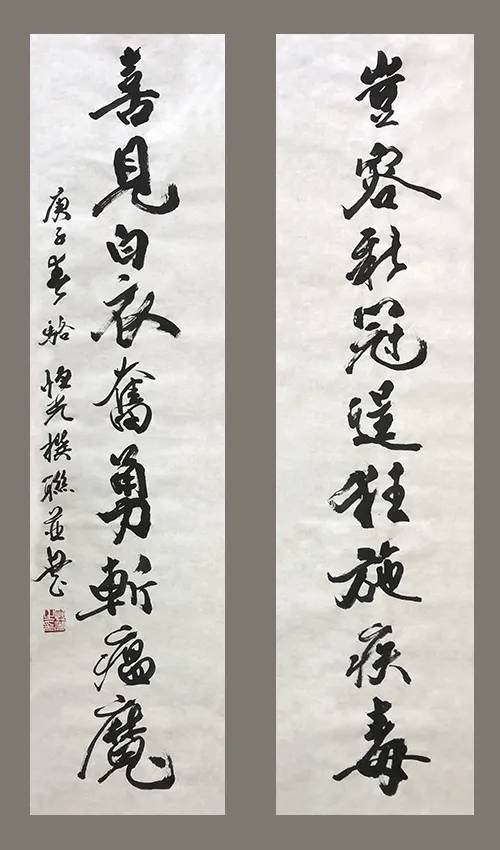 豈容新冠逞狂施疾毒
喜見白衣奮勇斬瘟魔
庚子春駱恒光撰聯並書